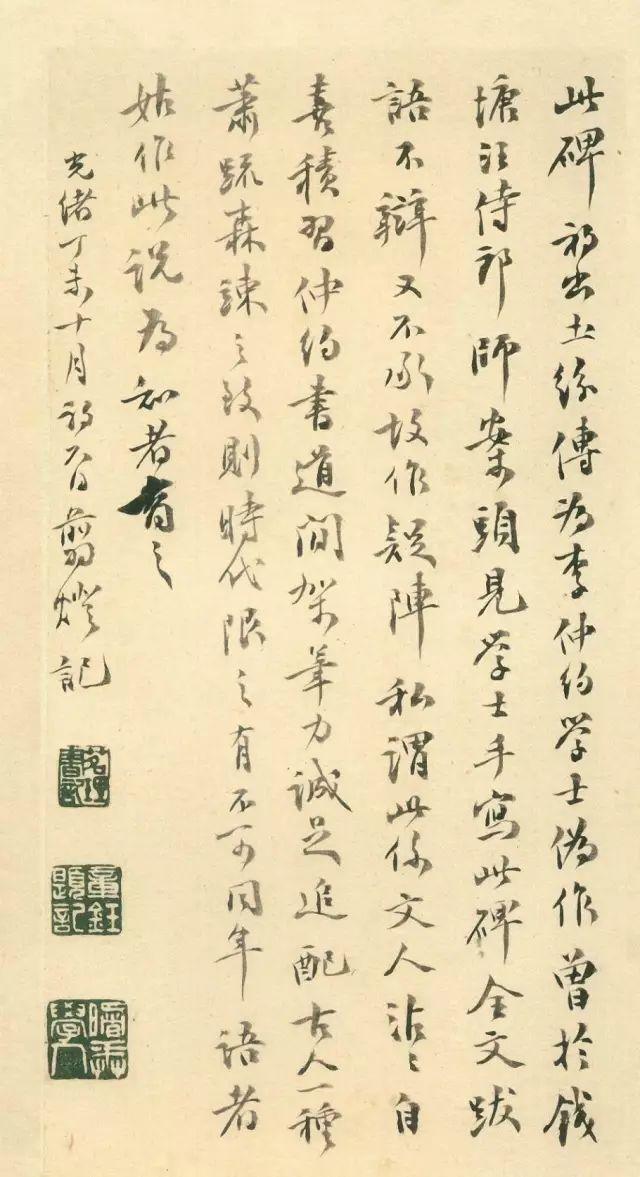 此碑初出土紛傳為李仲約學士偽作曾於錢
塘汪侍郎師案頭見學士手寫此碑全文跋
語不辯又不承故作疑陣私謂此係文人沾沾自
喜積習仲約書道間架筆力誠足追配古人一種
蕭疏森竦之致則時代限之有不可同年語者
姑作此說為知者之
光緒丁未十月初日翦燈記
茗理書記
章鈺題記
曙戒學人